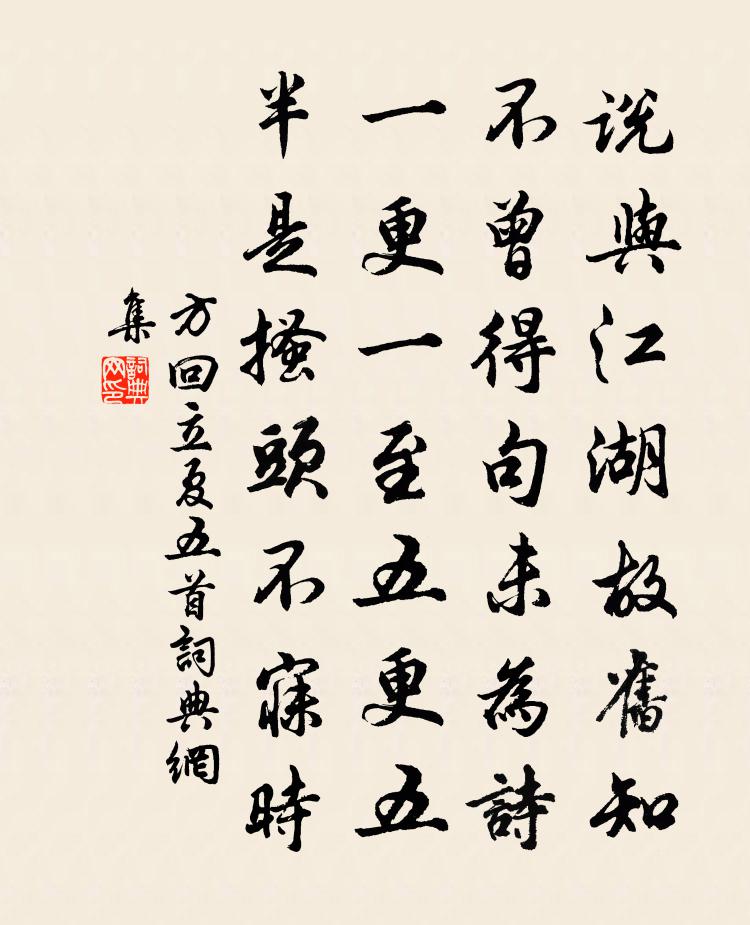 説與江湖故舊知
不曾得句未為詩
一更一至五更五
半是搔頭不寐時
方回立夏五首詞典網
集
詞典网印